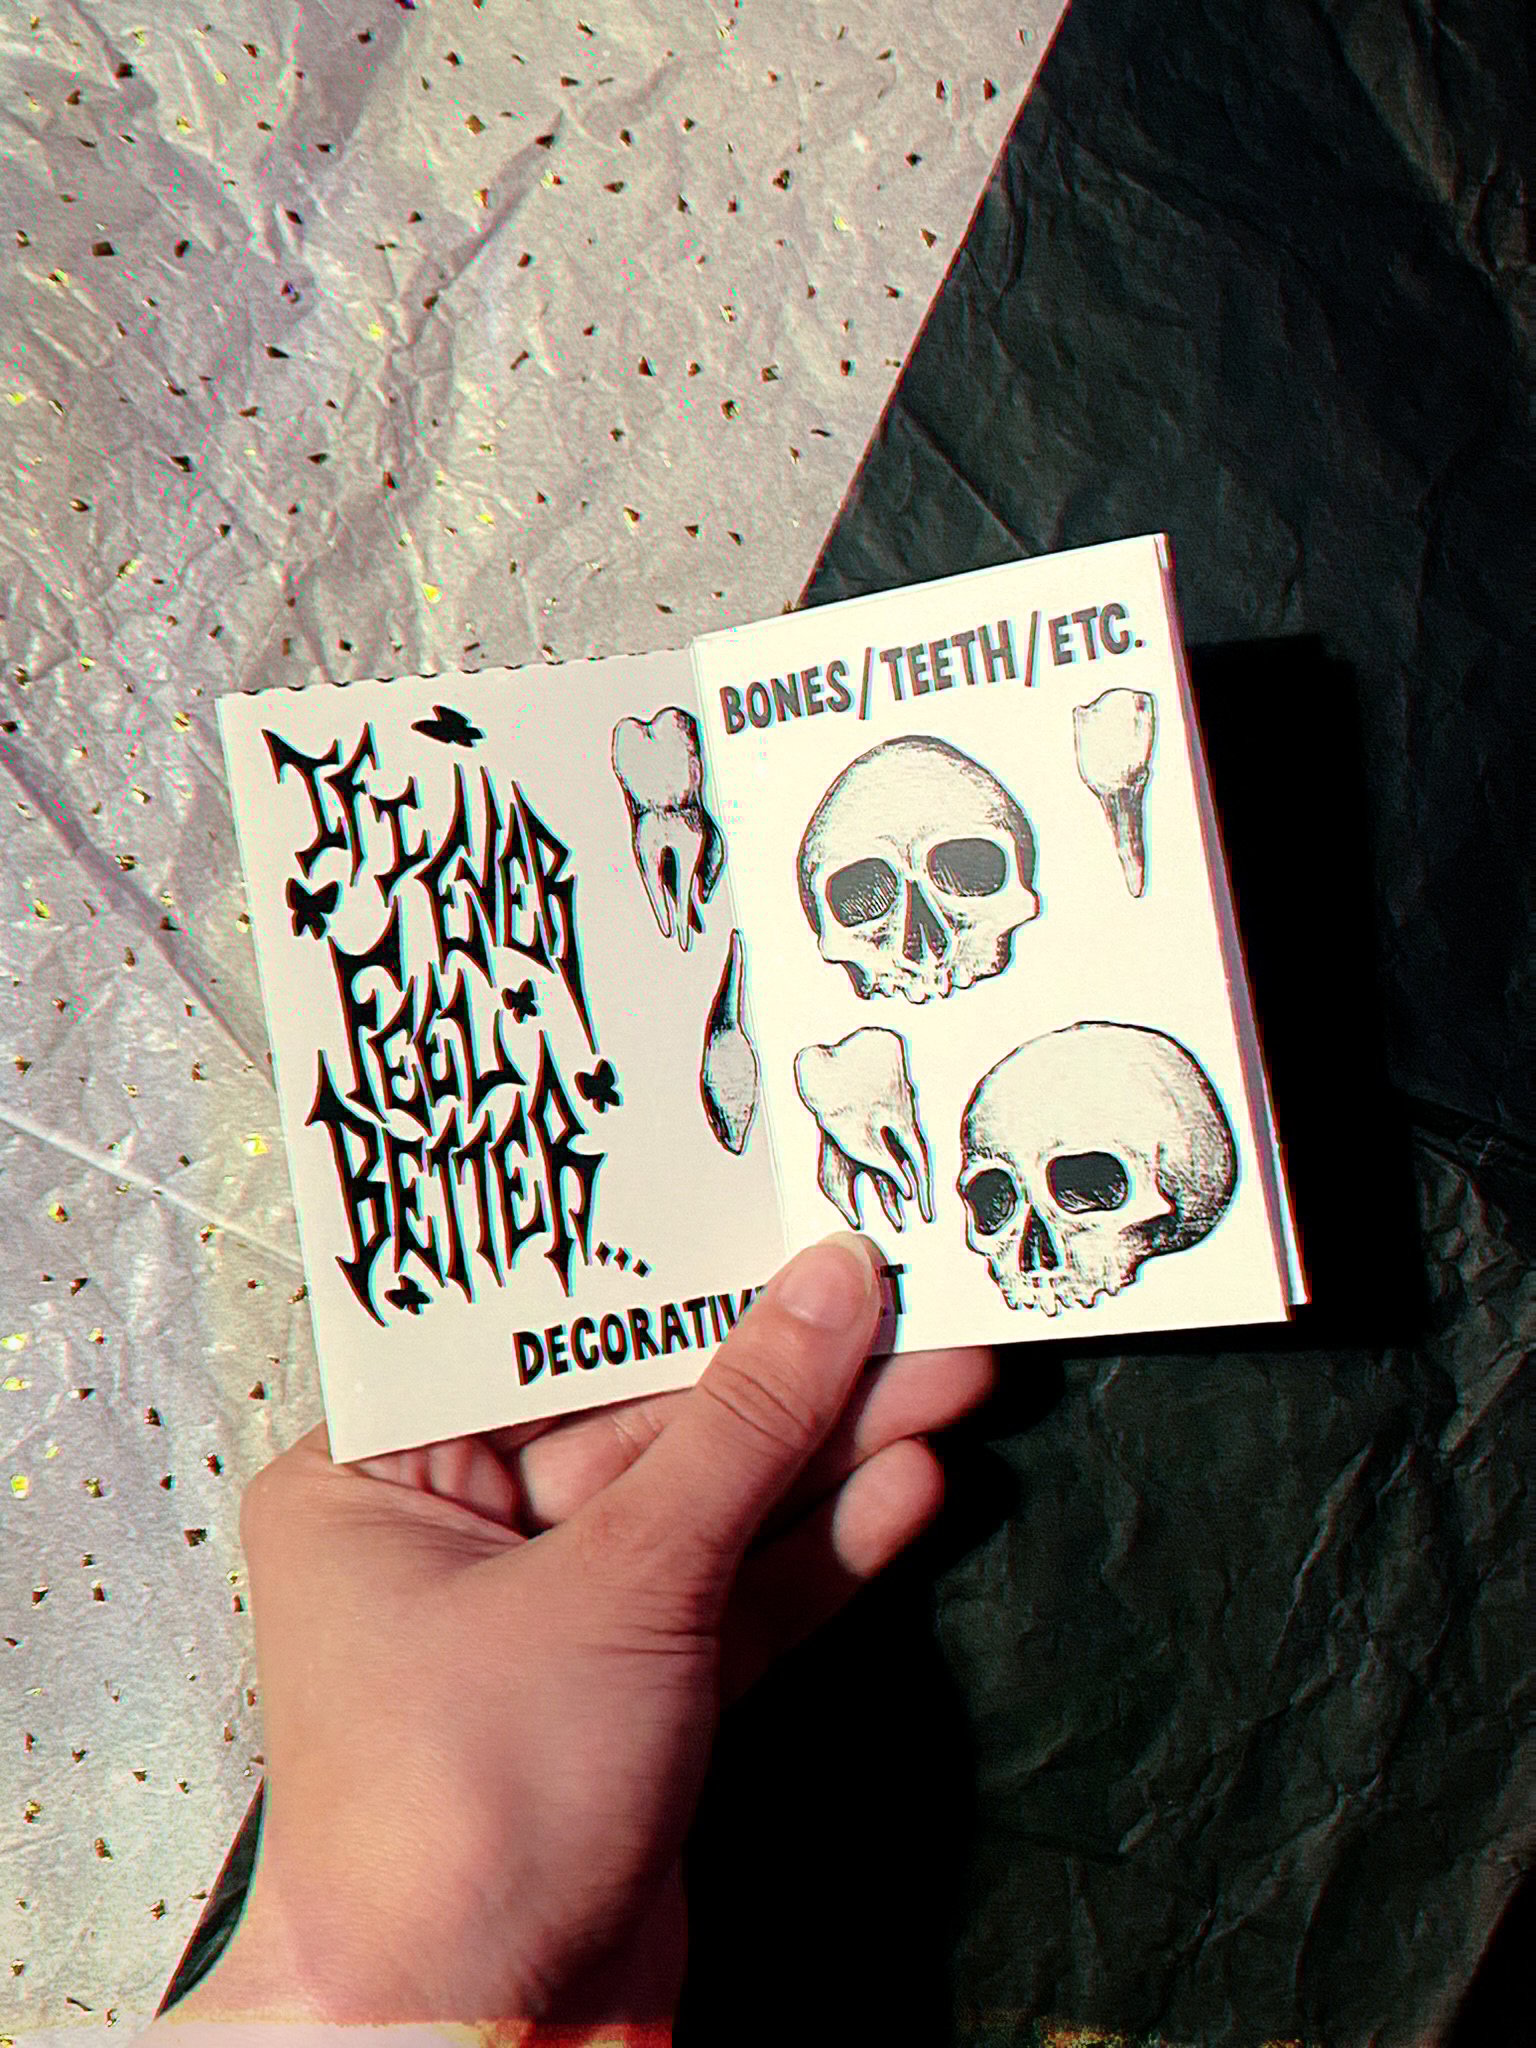 IF I
EVER
FEEL
BETTER...
DECORATIVE
BONES/TEETH/ETC.